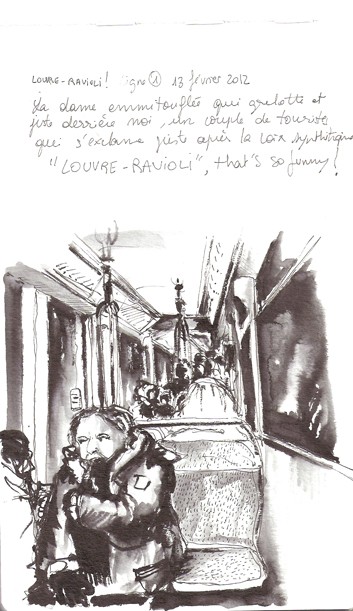 LOUVRE-RAVIOLI! ligne ① 13 février 2012
La dame emmitouflée qui grelotte et
juste derrière moi, un couple de touristes
qui s'exclame juste après la voix synthétique
"LOUVRE-RAVIOLI", that's so funny!